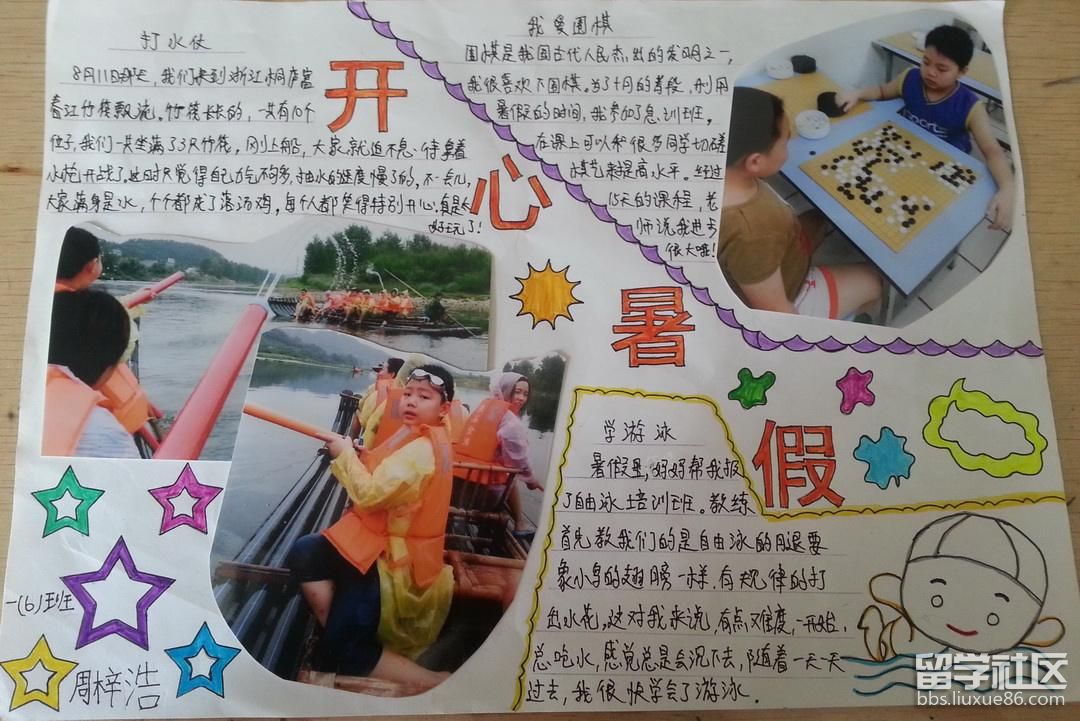 打水仗
8月11日那天,我们来到浙江桐庐富
春江竹筏飘流。竹筏长长的,一共有10个
位子,我们一共坐满了3只竹筏,刚上船,大家就迫不急待拿着
水炮开战了。这时只觉得自己力气不够多,抽水的速度慢了的。不一会儿,
大家满身是水,个个都成了落汤鸡,每个人都笑得特别开心,真是太
好玩了!
我爱围棋
围棋是我国古代人民杰出的发明之一,
我很喜欢下围棋。为了十月的考段,利用
暑假的时间,我参加了急训班。
在课上可以和很多同学切磋
棋艺来提高水平。经过
15天的课程,老
师说我进步
很大哦!
开
心
暑
假
学游泳
暑假里,好好帮我报
了自由泳培训班。教练
首先教我们的是自由泳的腿要
象小鸟的翅膀一样,有规律的打
出水花,这对我来说,有点难度,一开始,
总吃水,感觉总是会沉下去,随着一天一天
过去,我很快学会了游泳.
一(6)班
周梓浩
留学社区
bbs.liuxue86.com